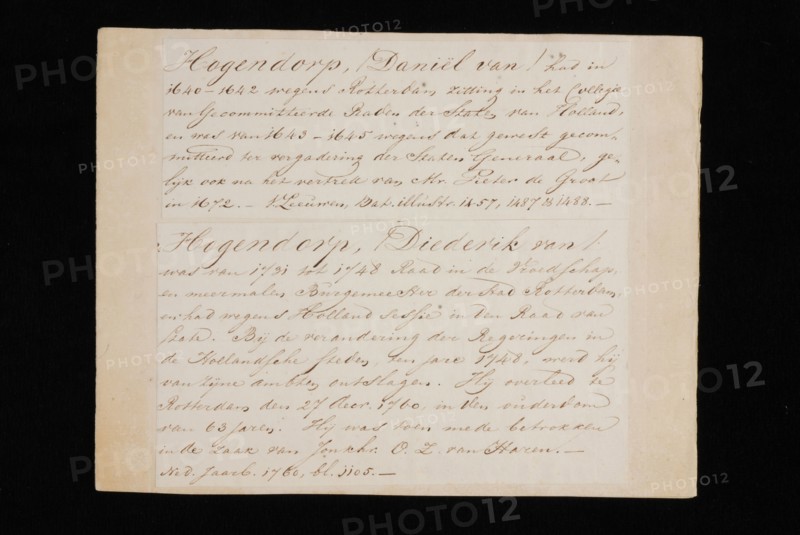 Hogendorp, (Daniël van) had in
1640-1642 wegens Rotterdam zitting in het Collegie
van Gecommitteerde Raden der Staten van Holland,
en was van 1643-1645 wegens dat gewest gecom-
mitteerd ter vergadering der Staten Generaal, ge-
lijk ook na het vertrek van Mr. Pieter de Groot
in 1672. - v. Leeuwen, Bat. illustr. 1457, 1487 1488. -
Hogendorp, (Diederik van)
was van 1731 tot 1748 Raad in de Vroedschap,
en meermalen Burgemeester der stad Rotterdam,
en had wegens Holland sessie in den Raad van
State. Bij de verandering der Regeringen in
de Hollandsche steden, ten jare 1748, werd hij
van zijne ambten ontslagen. Hij overleed te
Rotterdam den 27 Decr. 1760, in den ouderdom
van 63 jaren. Hij was mede betrokken
in de zaak van Jonkhr. O. Z. van Haren. -
Ned. Jaarb. 1760, bl. 1105. -
PHOTO12